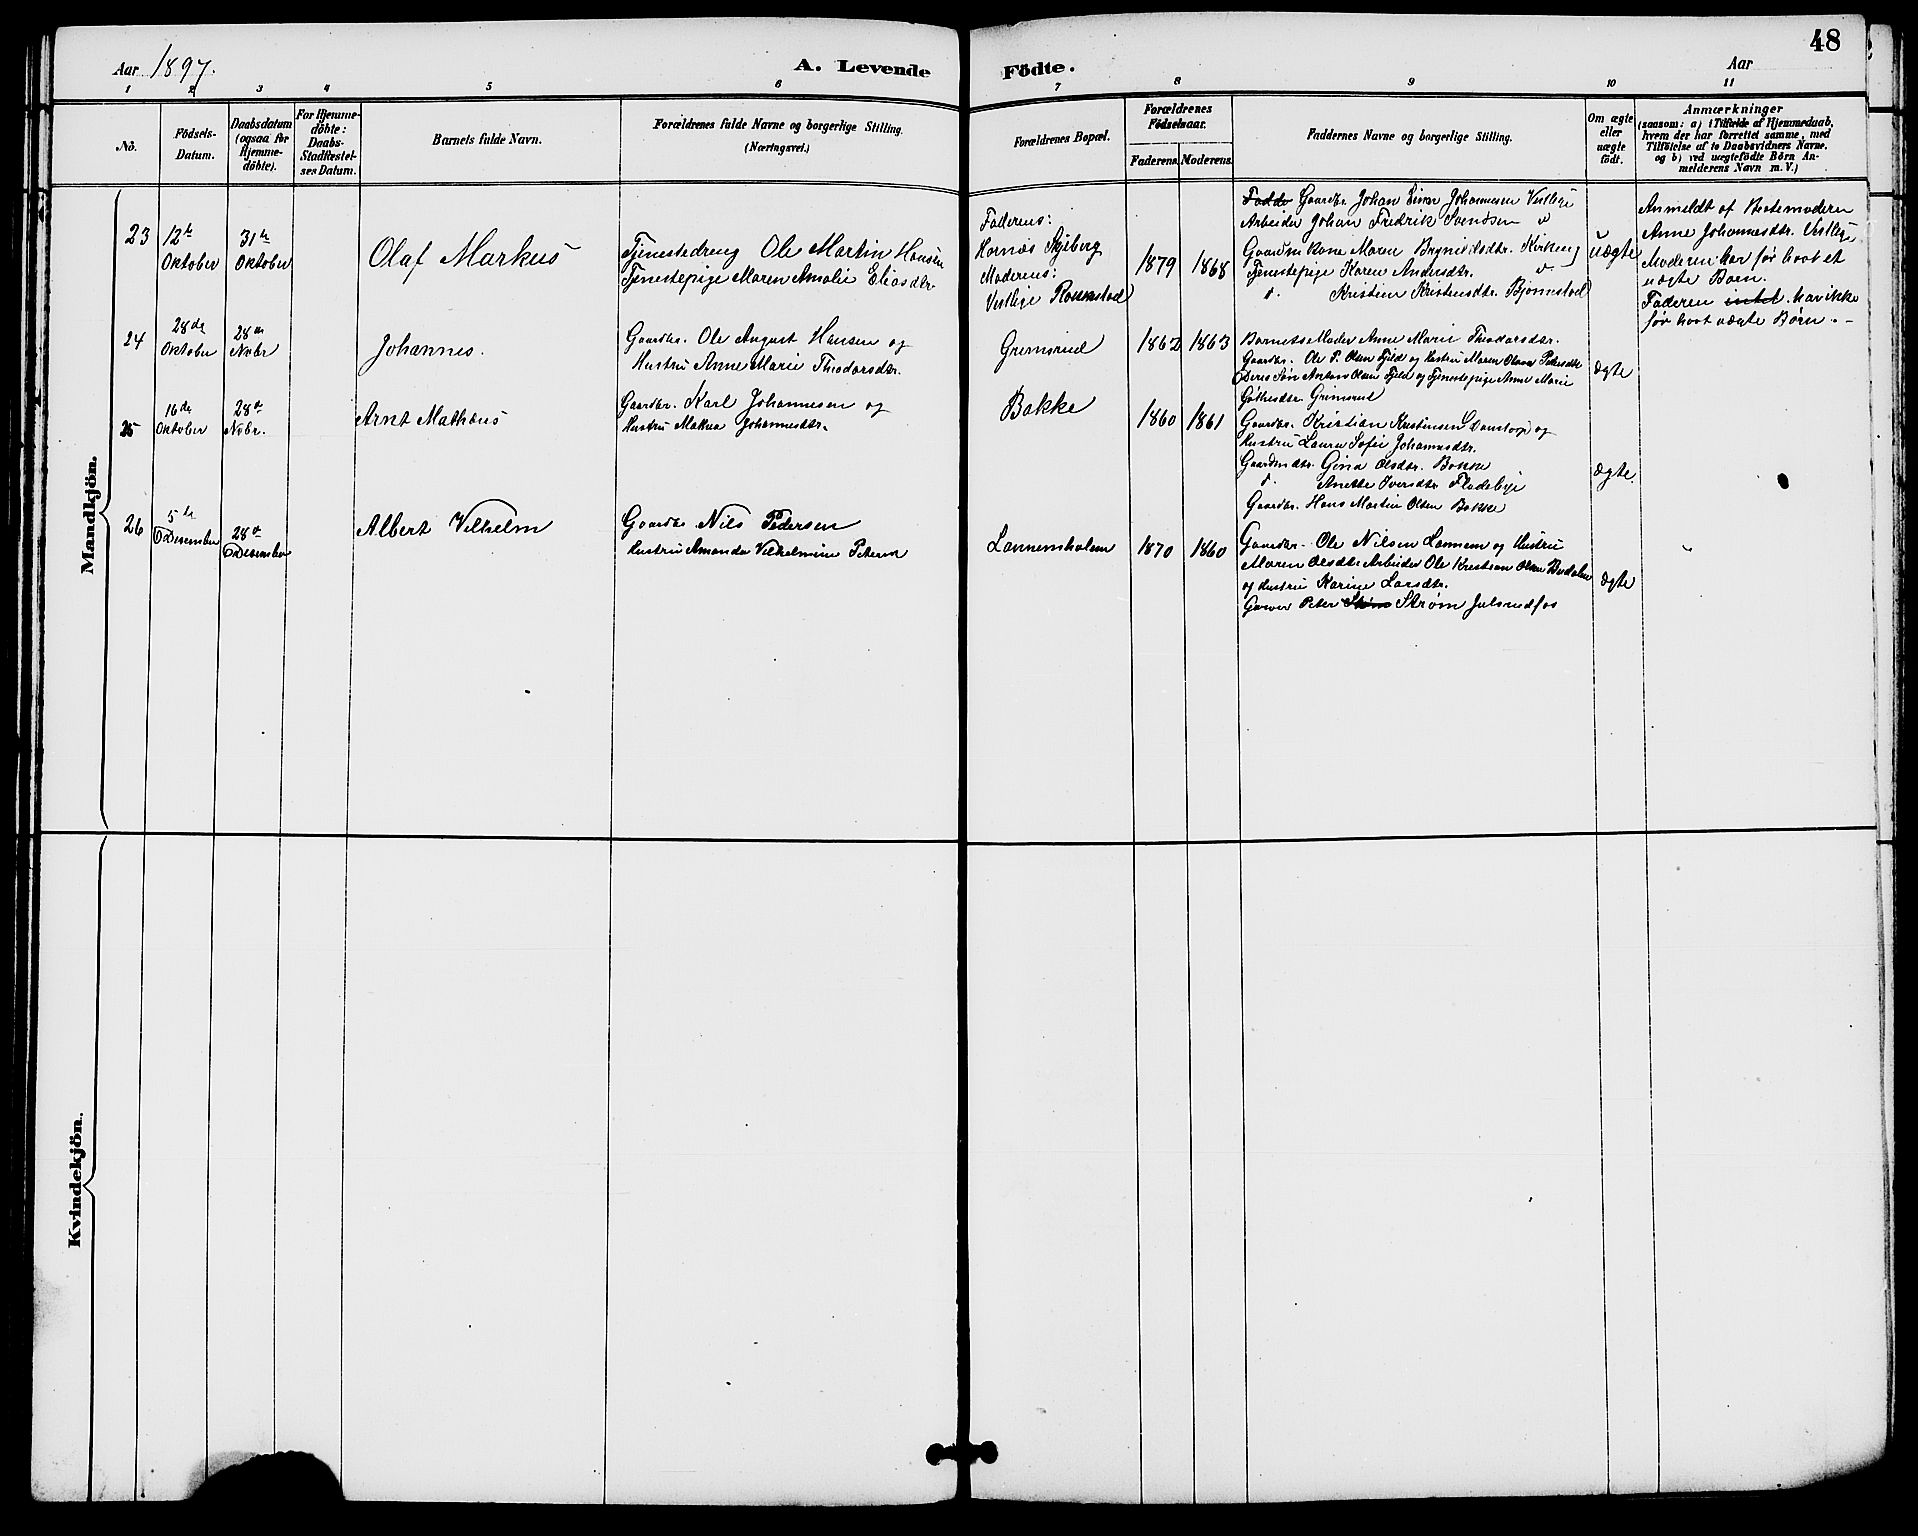 Aar 1897.
A. Levende
Födte.
48
Aar
1 2 3 4 5 6 7 8 9 10 11
No.
Födsels-
Datum.
Daabsdatum
(ogsaa for
Hjemme-
döbte).
For Hjemme-
döbte:
Daabs-
Stadfæstel-
ses Datum.
Barnets fulde Navn.
Forældrenes fulde Navne og borgerlige Stilling.
(Næringsvei.)
Forældrenes Bopæl.
Forældrenes
Födselsaar.
Faderens. Moderens.
Faddernes Navne og borgerlige Stilling.
Om ægte
eller
uægte
født.
Anmærkninger
(saasom: a) i Tilfælde af Hjemmedaab,
hvem der har forrettet samme, med
Tilföielse af to Daabsvidners Navne,
og b) ved uægtefödte Börn An-
melderens Navn m. V.)
Mandkjön.
23
12te
Oktober
31te
Oktober
Olaf Markus
Tjenestedreng Ole Martin Hansen
Tjenestepige Maren Amalie Eliasdtr.
Faderens:
Hornæs Skjeberg
Moderens:
Vestlige Rokkestad
1879 1868
Fadde Gaardbr. Johan Johannesen Vestlige
Arbeider Johan Fredrik Svendsen
Gaardm Kone Maren Brynildsdtr. Kirkeng
Tjenestepige Karen Andersdtr.
Kristine Kristensdtr. Bjørnestad
uægte
Anmeldt af Bestemoderen
Anne Johannesdtr. Vestlige
Moderen har før havt et
uægte Barn.
Faderen har ikke
før havt uægte Børn.
24
28de
Oktober
28de
Nobr
Johannes.
Gaardbr. Ole August Hansen og
Hustru Anne Marie Theodorsdtr.
Grimsrud
1862 1863
Barnets Moder Anne Marie Theodorsdtr.
Gaardbr. Ole P. Olsen Fjeld og Hustru Maren Olava Petersdtr
Deres Søn Anton Olsen Fjeld og Tjenestepige Anne Marie
Grimsrud
ægte
25
16de
Oktober
28de
Nobr.
Arnt Mathæus
Gaardbr. Karl Johannesen og
Hustru Johannesdtr.
Bakke
1860 1861
Gaardbr. Kristian Kristensen og
Hustru Laura Sofie Johannesdtr.
Gaardmdtr. Gina Olsdtr. Bakke
Anette Iversdtr. Fladebye
Gaardbr. Hans Martin Olsen Bakke
ægte.
26
5te
Desember
28de
Desember
Albert Vilhelm
Gaardbr Nils Pedersen
Hustru Amanda Vilhelmine
Lannemholm
1870 1860
Gaardbr. Ole Nilsen Lannem og Hustru
Maren Olsdtr Arbeider Ole Kristian Olsen Budalen
og Hustru Karine Larsdtr.
Garver Peter Strøm Strøm
ægte
Kvindekjön.